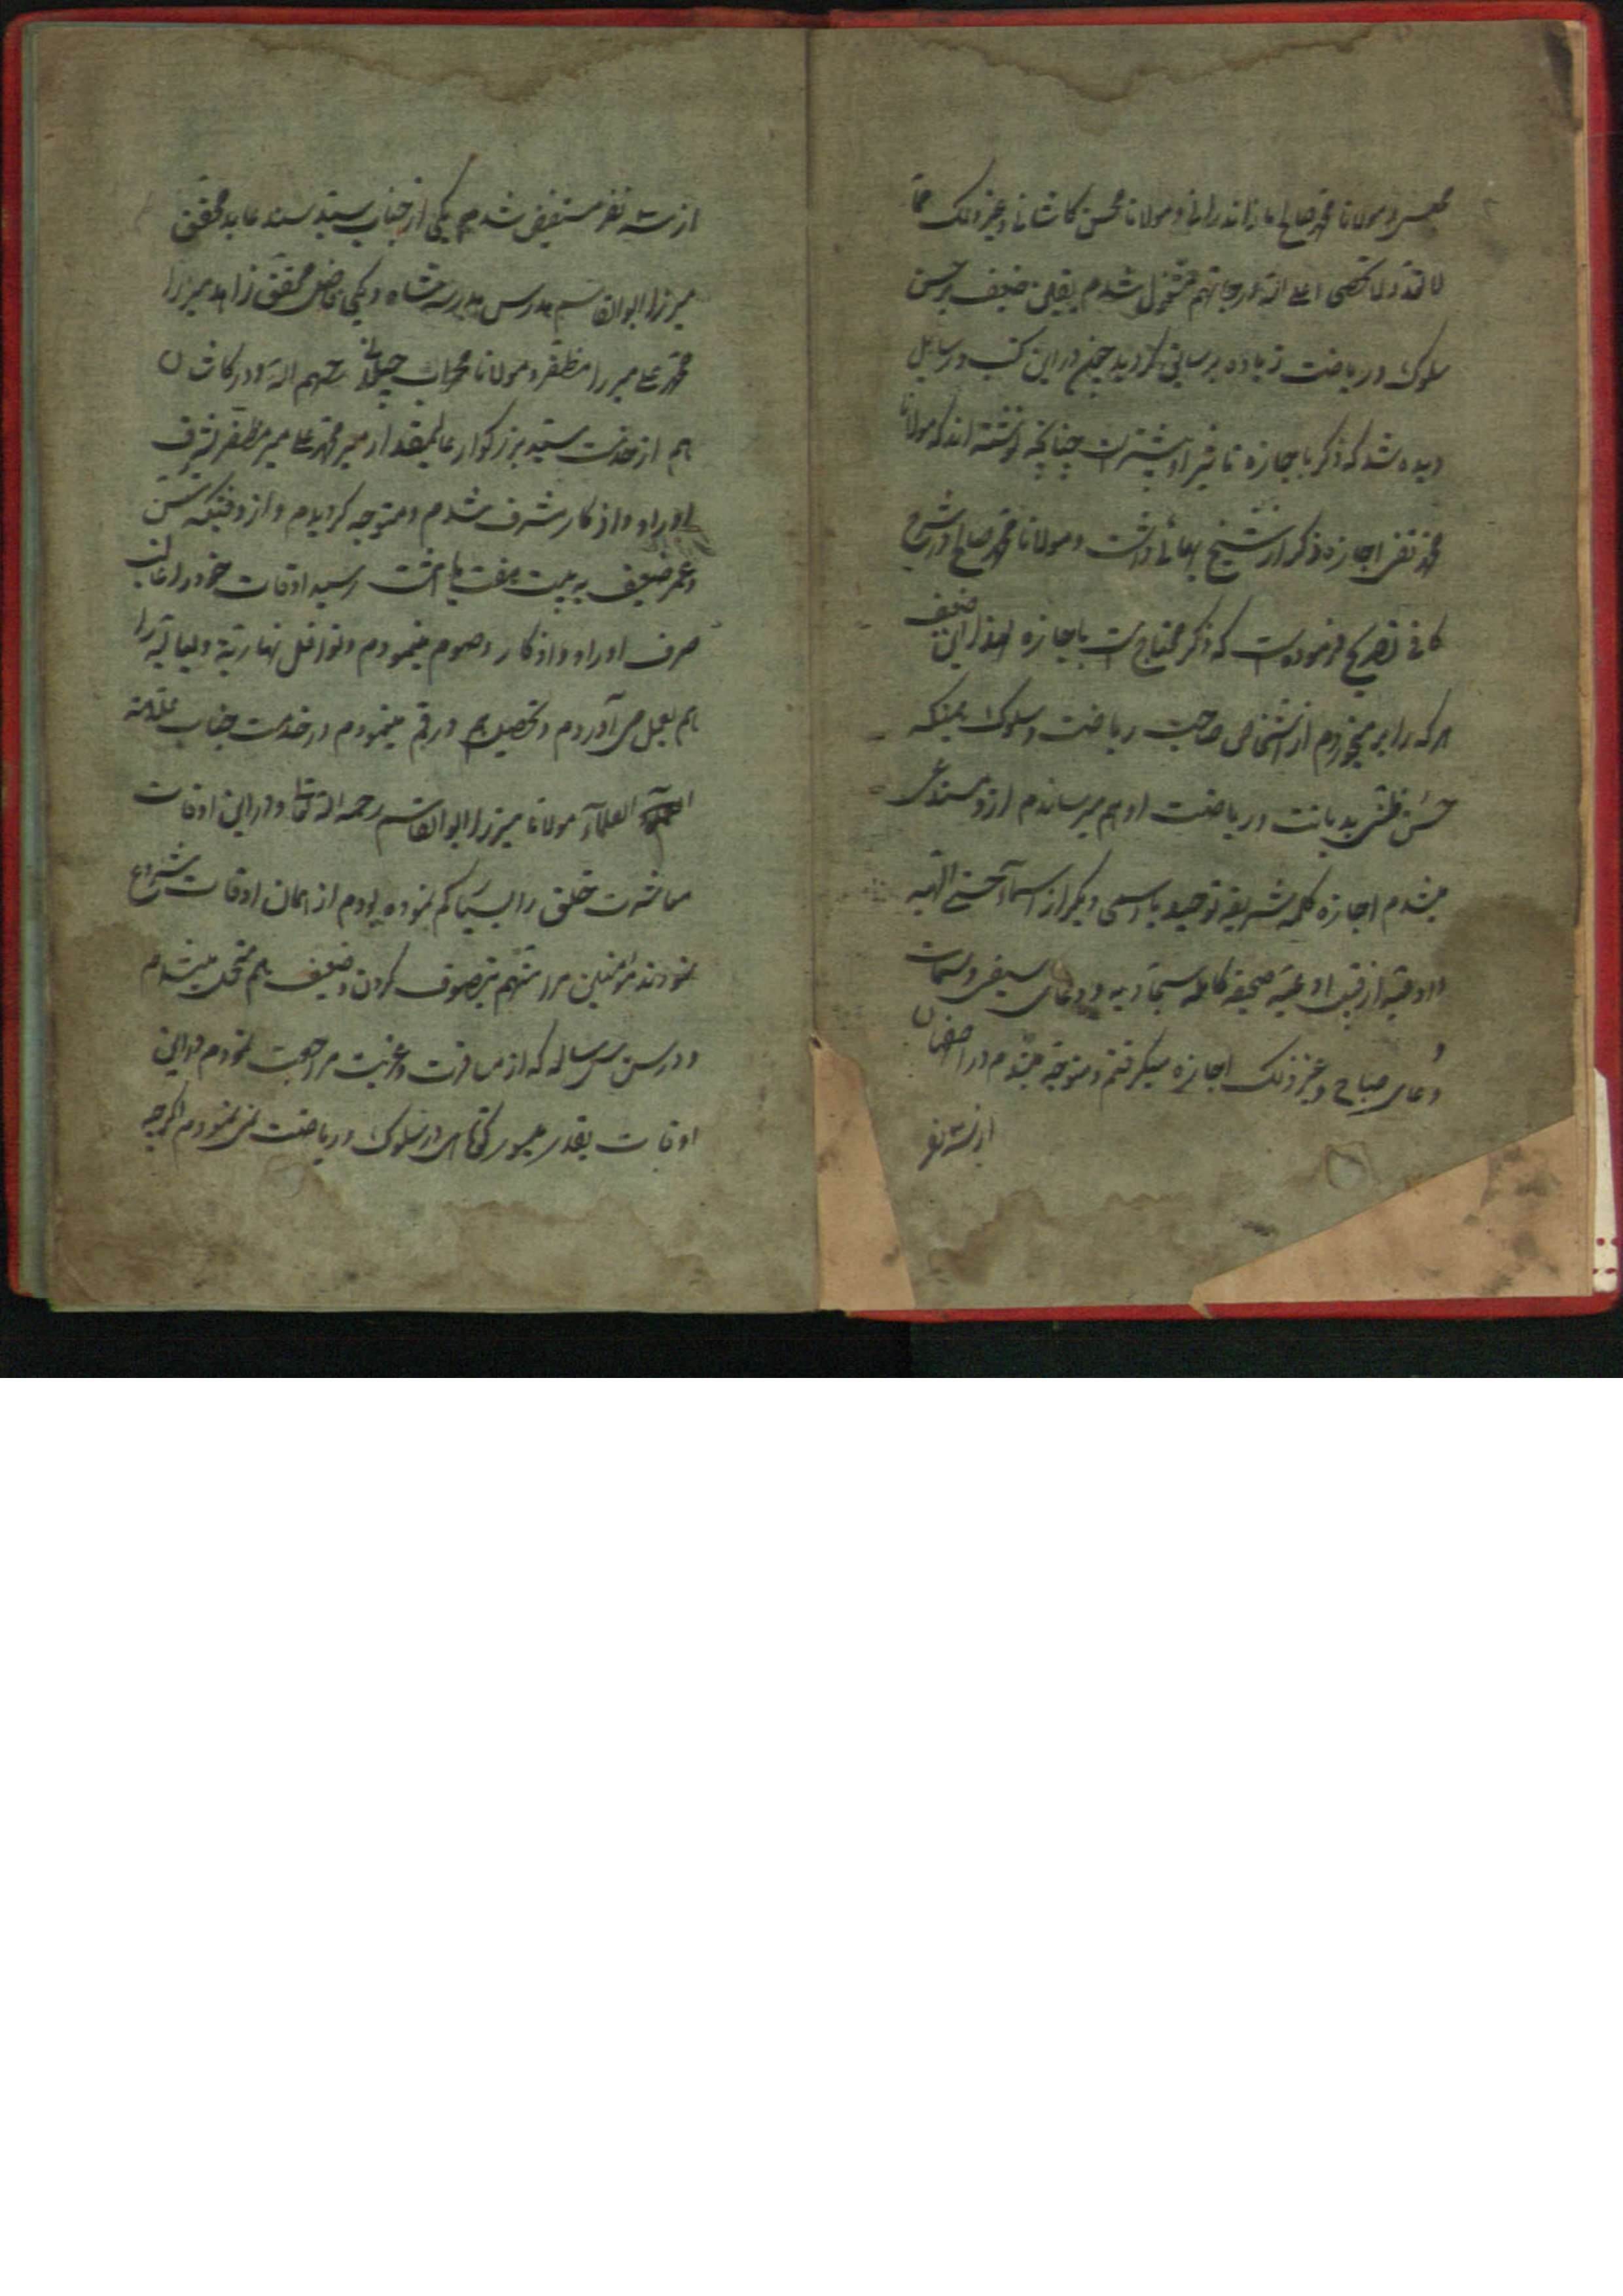 و مولانا محمد صالح مازاندرانی و مولانا محسن کاشانی و غیر ذلک مما
لا تعد و لا تحصی اعلی الله درجاتهم مشغول شدم یقین ضعیف بر حسن
سلوک و ریاضت زیاده بر سابق گردید چون در این کتب و رسایل
دیده شد که ذکر با اجازه تاثیر او بیشتر است چنانچه نوشته‌اند که مولانا
محمد تقی اجازه ذکر از شیخ بهائی داشت و مولانا محمد صالح در شرح
کافی تصریح فرموده است که ذکر محتاج است باجازه لهذا این ضعیف
هر که را بر میخوردم از اشخاص صاحب ریاضت و سلوک بمینکه
حسن ظنی بدیانت و ریاضت او بهم میرساندم ازو مستدعی
میشدم اجازه کلمه شریفه توحید یا اسمی دیگر از اسماء حسنی الهیه
و ادعیه از قبیل ادعیه صحیفه کامله سجادیه و دعای سیفی و سمات
و دعای صباح و غیر ذلک اجازه میگرفتم و متوجه میشدم در اصفهان
از سه نفر
از سه نفر مستفیض شدم یکی از جناب سید سند عابد محقق
میرزا ابوالقاسم مدرس مدرسه شاه و یکی فاضل محقق زاهد میرزا
محمد علی میرزا مظفر و مولانا محراب جیلانی رحمهم الله و در کاشان
هم از خدمت سید بزرگوار عالیمقدار میر محمد علی میر مظفر بشرف
اوراد و اذکار مشرف شدم و متوجه گردیدم و از وقتیکه سن
و عمر ضعیف به بیست هفت یا هشت رسید اوقات خود را غالب
صرف اوراد و اذکار و صوم مینمودم و نوافل نهاریه و لیالیه را
هم بعمل می آوردم و تحصیل هم در قم مینمودم در خدمت جناب علامة
العلمآء مولانا میرزا ابوالقاسم رحمه الله تعالی و در این اوقات
معاشرت خلق را بسیار کم نموده بودم از همان اوقات شروع
نمودند مؤمنین مرا متهم بتصوف کردن و ضعیف هم متحمل میشدم
و در سن سی سالگه که از مسافرت و غربت مراجعت نمودم در این
اوقات بقدر میسور کوتاهی در سلوک و ریاضت نمی نمودم اگر چه